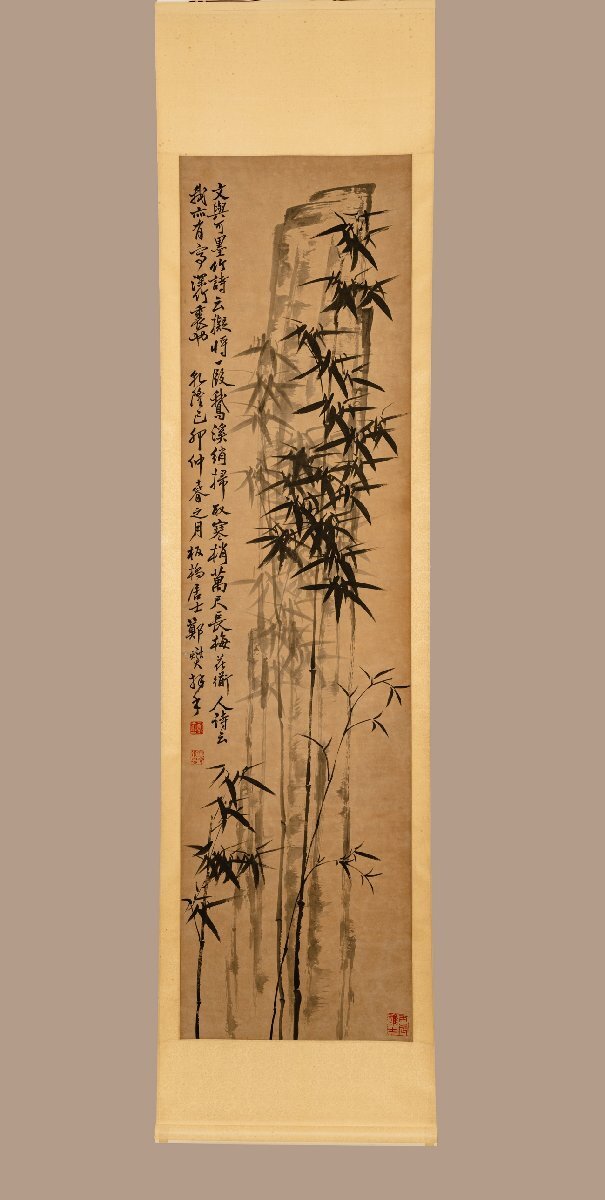 文與可墨竹詩云擬將一段鵞溪絹掃取寒梢萬尺長梅花衜人詩云
我亦有亭深竹裏也
乾隆己卯仲春之月板橋居士鄭燮拜手